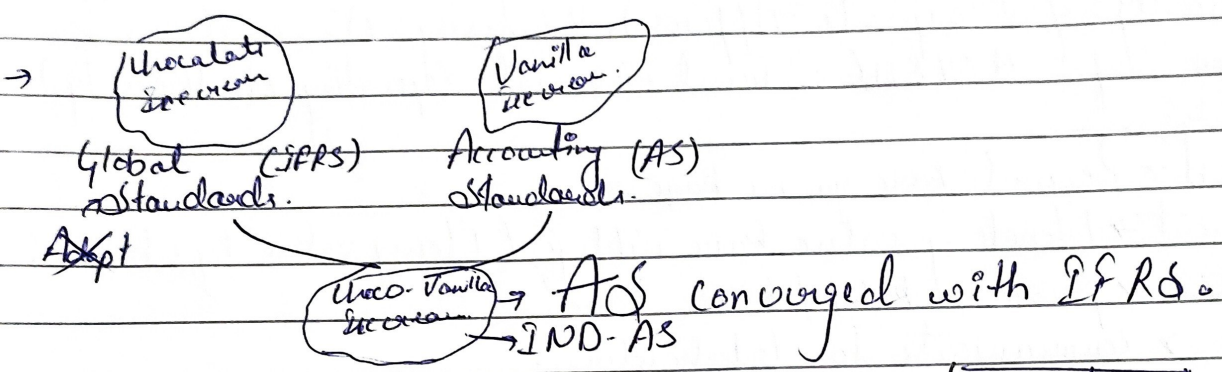 → Chocalate
icecream
Vanilla
icecream.
Global (IFRS)
Standards.
Accounting (AS)
Standards.
Adopt
Choco-Vanilla
icecream
→ AS converged with IFRS.
→ IND-AS